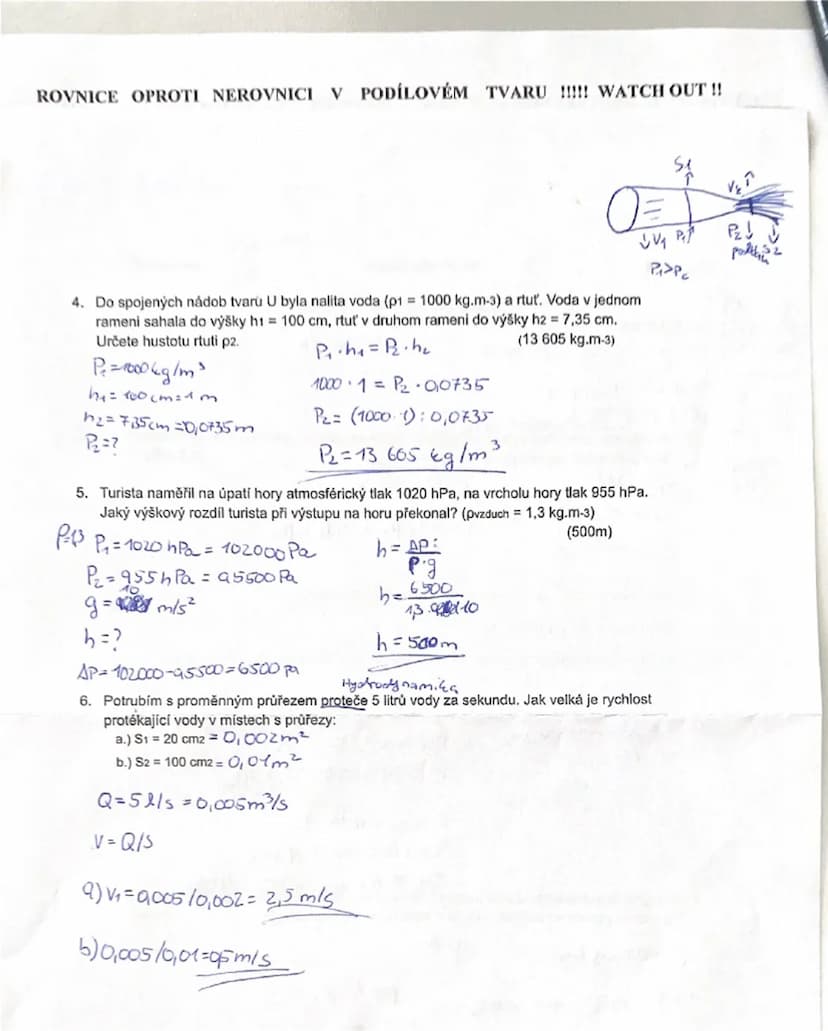 ROVNICE OPROTI NEROVNICI V PODÍLOVÉM TVARU !!!!! WATCH OUT !!
S1
V2
V1 P1
P2
S2
P1>P2
4. Do spojených nádob tvaru U byla nalita voda (ρ1 = 1000 kg.m-3) a rtuť. Voda v jednom
rameni sahala do výšky h1 = 100 cm, rtuť v druhom rameni do výšky h2 = 7,35 cm.
Určete hustotu rtuti ρ2. (13 605 kg.m-3)
P1=1000kg/m³
h1=100cm=1m
h2=7,35cm=0,0735m
P2=?
P1·h1=P2·h2
1000·1=P2·0,0735
P2=(1000·1):0,0735
P2=13 605 kg/m³
5. Turista naměřil na úpatí hory atmosférický tlak 1020 hPa, na vrcholu hory tlak 955 hPa.
Jaký výškový rozdíl turista při výstupu na horu překonal? (ρvzduch = 1,3 kg.m-3)
(500m)
P1=1020hPa=102000Pa
P2=955hPa=95500Pa
g=10 m/s²
h=?
ΔP=102000-95500=6500Pa
h=ΔP:
P·g
h=6500
1,3·10
h=500m
Hydrodynamika
6. Potrubím s proměnným průřezem proteče 5 litrů vody za sekundu. Jak velká je rychlost
protékající vody v místech s průřezy:
a.) S1 = 20 cm2 =0,002m²
b.) S2 = 100 cm2 =0,01m²
Q=5l/s=0,005m³/s
V=Q/S
a) V1=0,005/0,002=2,5m/s
b) 0,005/0,01=0,5m/s